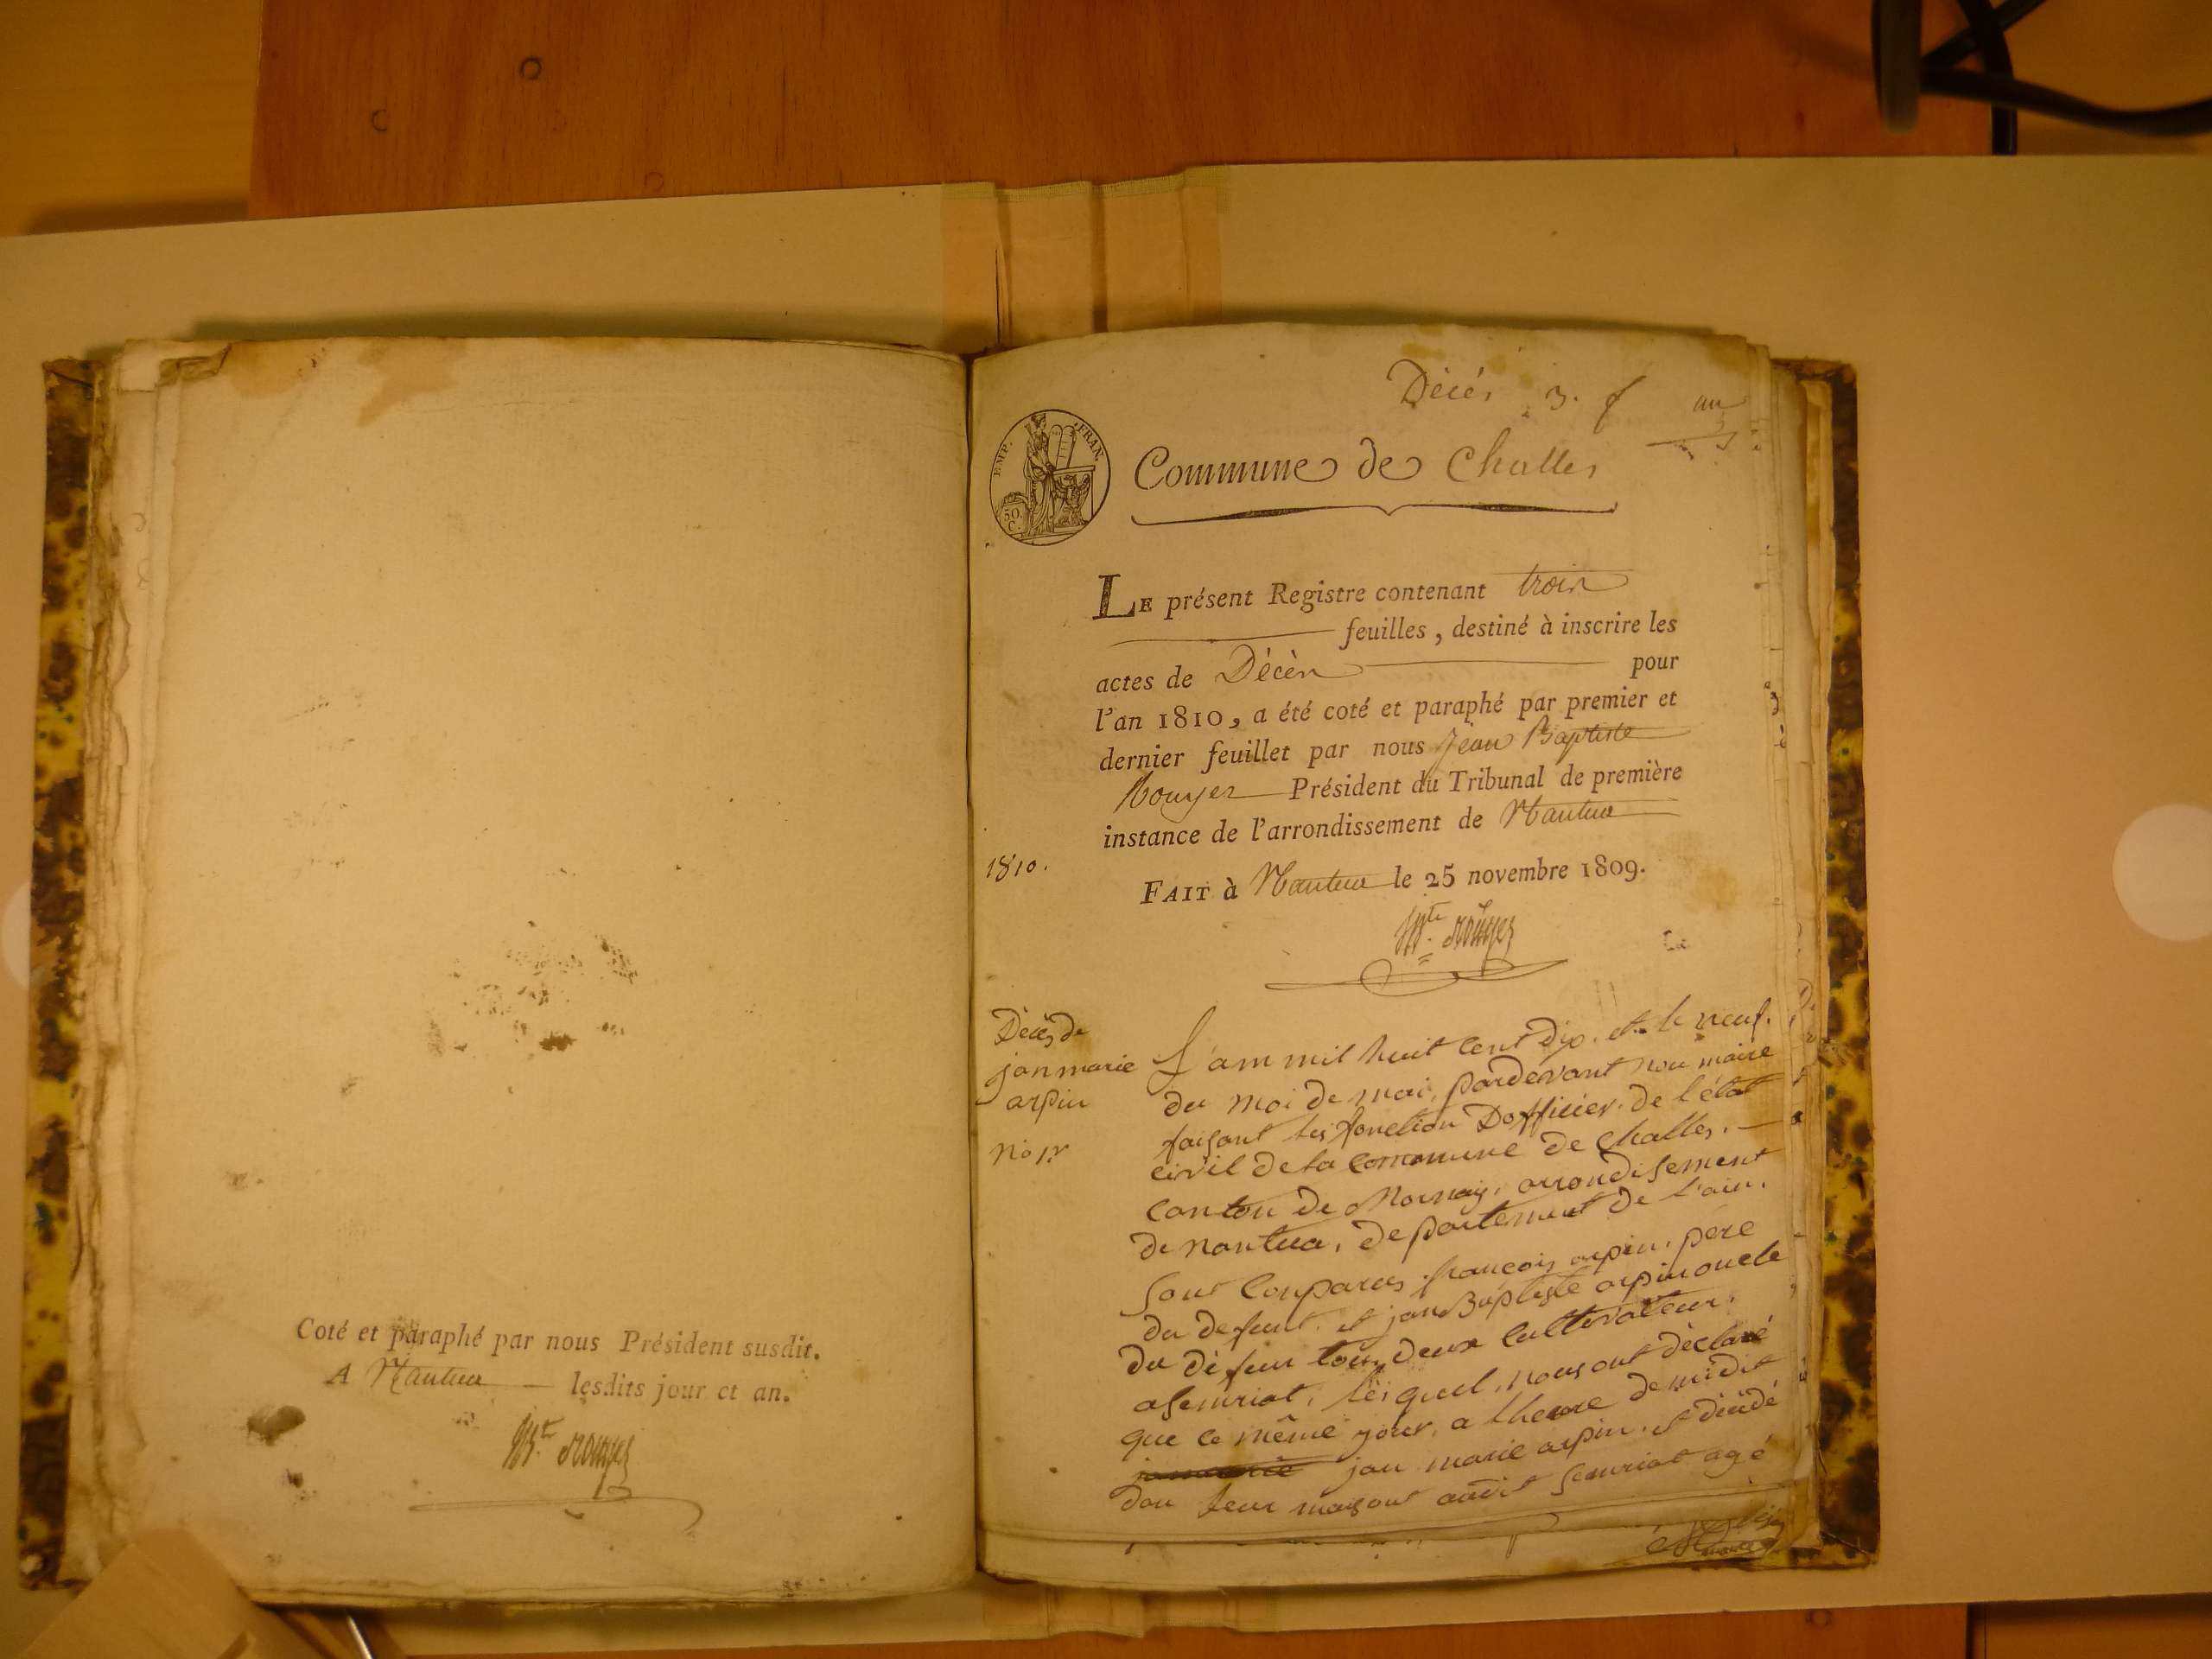 Coté et paraphé par nous Président susdit.
A Nantua lesdits jour et an.
Bte Rouyer
Décés 3. f
EMP. FRAN.
50.
C.
Commune de Challes
LE présent Registre contenant trois
feuilles, destiné à inscrire les
actes de Décès pour
l'an 1810, a été coté et paraphé par premier et
dernier feuillet par nous Jean Baptiste
Rouyer Président du Tribunal de première
instance de l'arrondissement de Nantua
1810.
FAIT à Nantua le 25 novembre 1809.
Bte Rouyer
Décés de
jan marie
arpin
L'am mil huit cent dix. et le neuf.
du moi de mai, pardevant nou maire
faisant les fonction Dofficier de l'état
civil de la commune de Challes.
canton de Mornay, arrondisement
de nantua, departement de l'ain.
Sont comparus françois arpin, pere
du defunt et jan Baptiste arpin oncle
du défun tous deux cultivateur.
a senriat, lesquel, nous ont déclaré
que ce même jour, a lheure de midit
jan marie arpin. et décédé
dan leur maison audit senriat agé